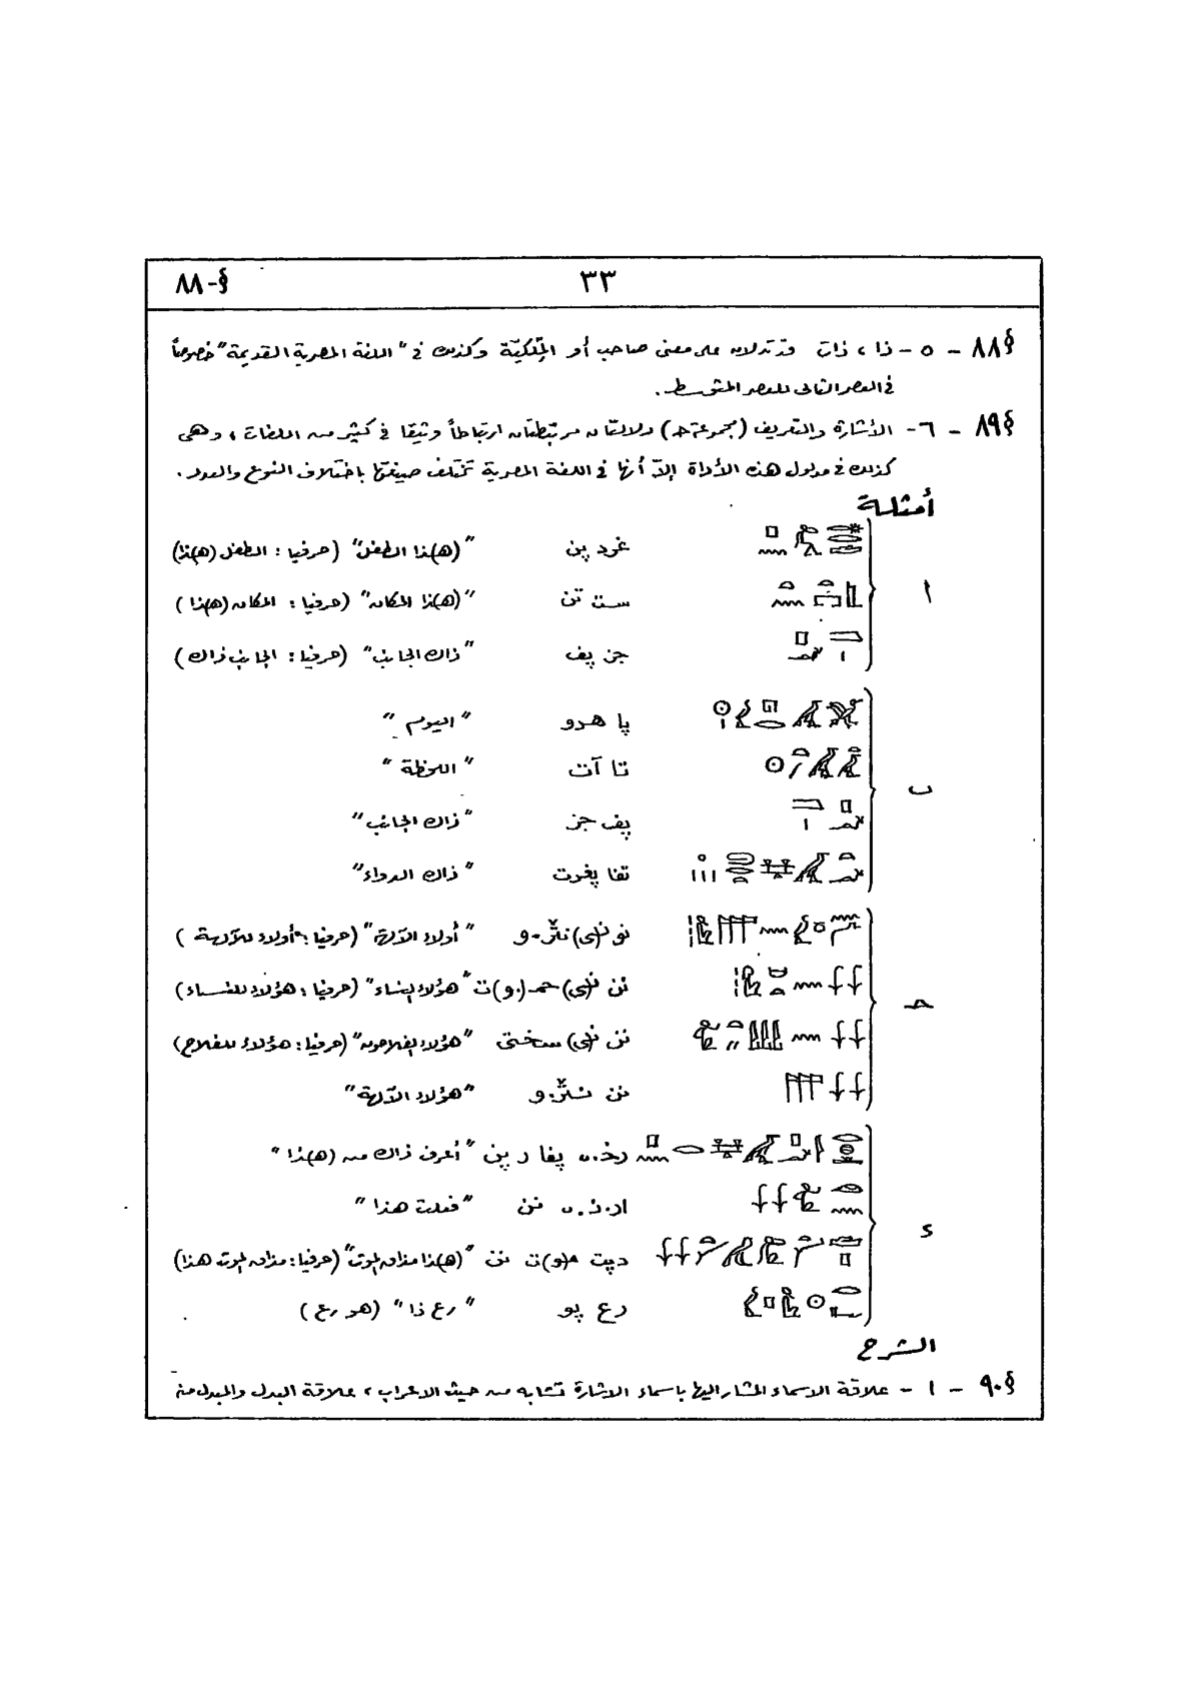 §-٨٨
٣٣
§٨٨ - ٥ - ذا، ذات قد تدلان على معنى صاحب أو المِلكيّة وكذلك في "اللغة المصرية القديمة" خصوصاً
في العصر التالى للعصر المتوسط.
§٨٩ - ٦ - الأشارة والتعريف (مجموعة حـ) دلالتان مرتبطتان ارتباطاً وثيقا في كثير من اللغات، وهى
كذلك في مدلول هذه الأداة إلاّ أنها في اللغة المصرية تختلف صيغتها باختلاف النوع والعدد.
أمثلة
ا
غرد پن "(هـ)ذا الطفل" (حرفيا: الطفل (هـ)ذا)
ست تن "(هـ)ذا المكان" (حرفيا: المكان (هـ)ذا)
جز پف "ذاك الجانب" (حرفيا: الجانب ذاك)
ب
پا هرو "اليوم"
تا آت "اللحظة"
پف جز "ذاك الجانب"
تفا پغرت "ذاك الدواء"
حـ
نو ن(ى) نثر.و "أولاء الآلهة" (حرفيا: أولاء للآلهة)
نن ن(ى) حمـ(.و)ت "هؤلاء النساء" (حرفيا: هؤلاء للنساء)
نن ن(ى) سختى "هؤلاء الفلاحون" (حرفيا: هؤلاء للفلاح)
نن نثر.و "هؤلاء الآلهة"
د
رخ.ن پفا ر پن "أعرف ذاك من (هـ)ذا"
ار.ن.ن نن "فعلت هذا"
دپت م(و)ت نن "(هـ)ذا مذاق الموت" (حرفيا: مذاق الموت هذا)
رع پو "رع ذا" (هو رع)
الشرح
§٩٠ - ١ - علاقة الاسماء المشار اليها باسماء الاشارة تشابه من حيث الاعراب، علاقة البدل والمبدل منه